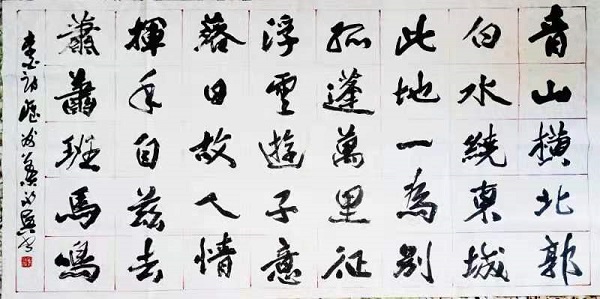 青山橫北郭
白水繞東城
此地一為別
孤蓬萬里征
浮雲遊子意
落日故人情
揮手自茲去
蕭蕭班馬鳴